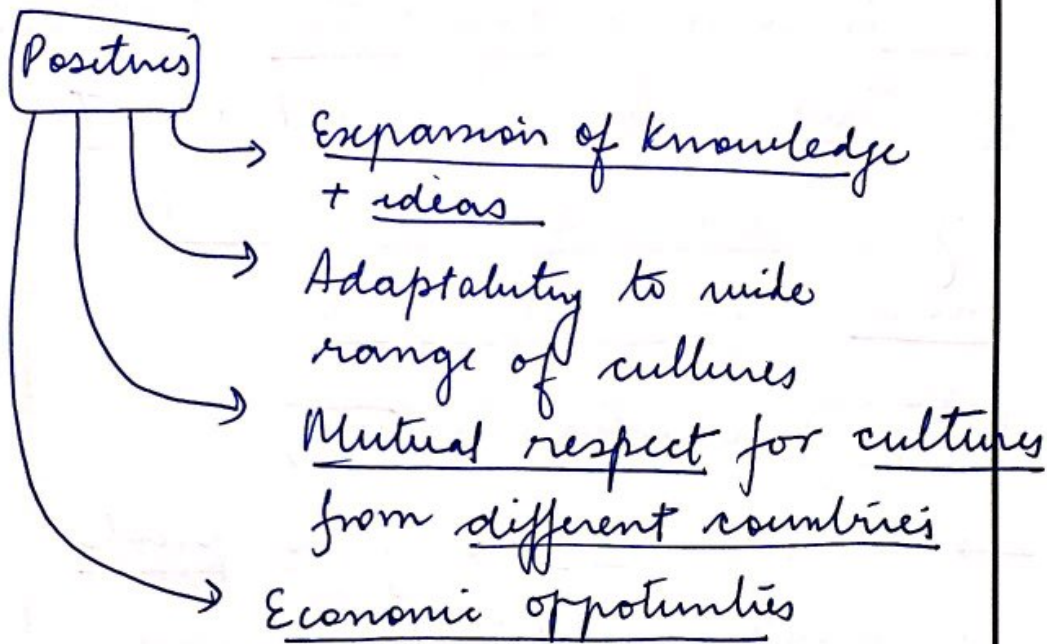 Positives
Expansion of knowledge
+ ideas
Adaptability to wide
range of cultures
Mutual respect for cultures
from different countries
Economic oppotunities